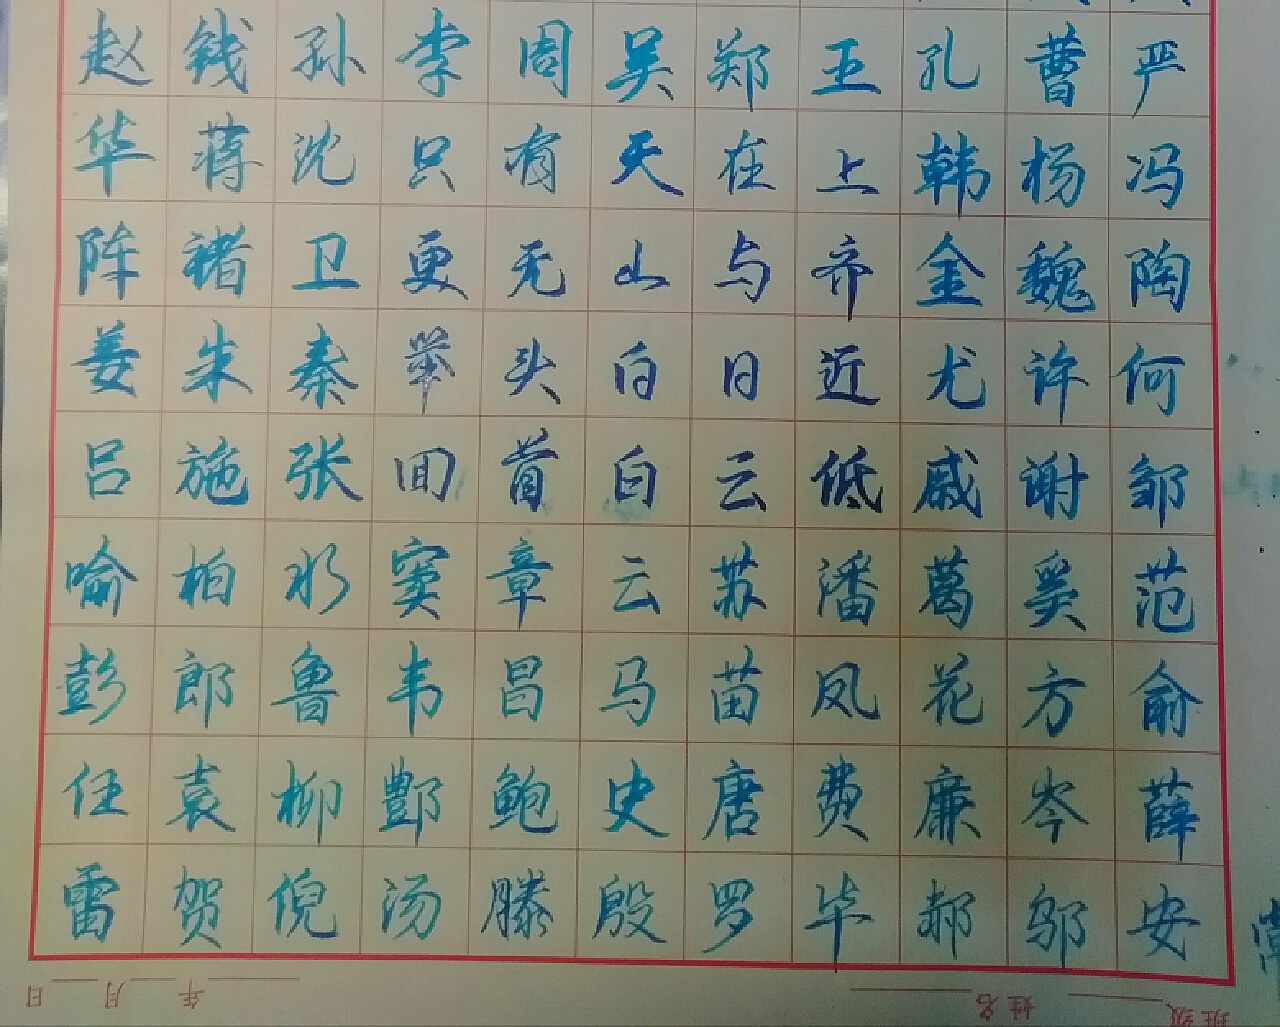 赵钱孙李周吴郑王孔曹严
华蒋沈只有天在上韩杨冯
陈褚卫更无山与齐金魏陶
姜朱秦举头白日近尤许何
吕施张回首白云低戚谢邹
喻柏水窦章云苏潘葛奚范
彭郎鲁韦昌马苗凤花方俞
任袁柳酆鲍史唐费廉岑薛
雷贺倪汤滕殷罗毕郝邬安
常
班级 姓名 年 月 日